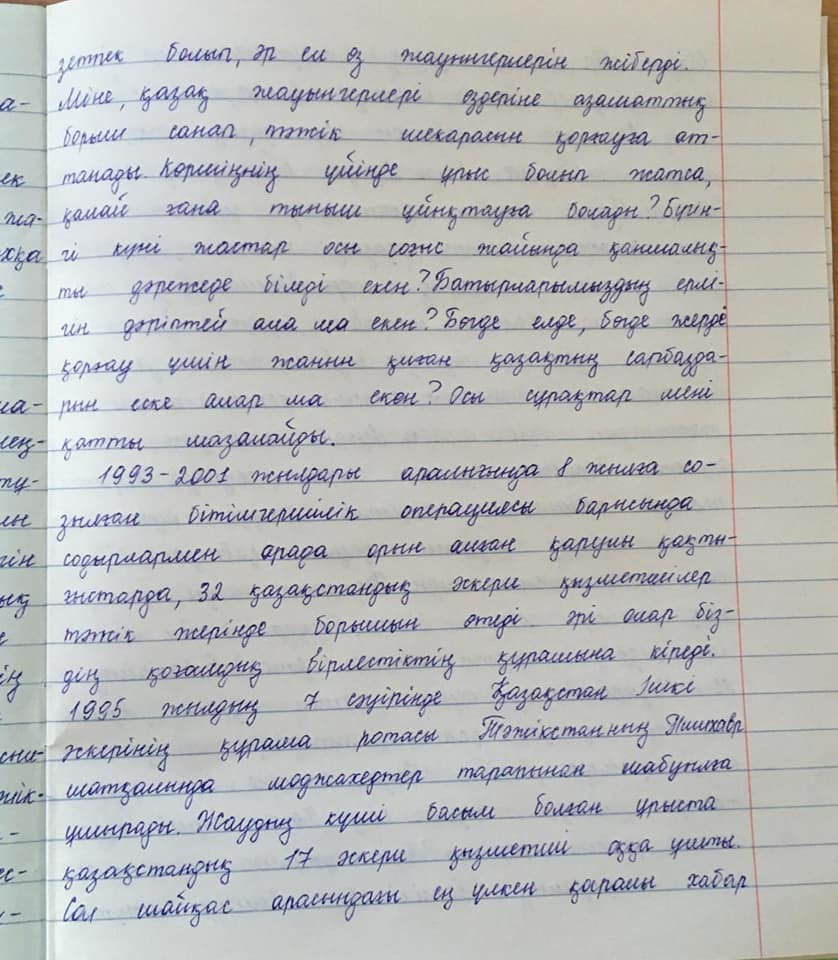 зетпек болып, әр ел өз жауынгерлерін жіберді.
а- Міне, қазақ жауынгерлері өздеріне азаматтық
борыш санап, тәжік шекарасын қорғауға ат-
ек танады. Көршіңнің үйінде ұрыс болып жатса,
жа- қалай ғана тыныш ұйықтауға болады? Бүгін-
хқа гі күні жастар осы соғыс жайында қаншалық-
ты дәрежеде біледі екен? Батырларымыздың ерлі-
гін дәріптей ала ма екен? Бөгде елде, бөгде жерде
қорғау үшін жанын қиған қазақтың сарбазда-
рын еске алар ма екен? Осы сұрақтар мені
қатты мазалайды.
1993-2001 жылдары аралығында 8 жылға со-
зылған бітімгершілік операциясы барысында
гін содырлармен арада орын алған қарулы қақты-
ық ғыстарда, 32 қазақстандық әскери қызметшілер
тәжік жерінде борышын өтеді әрі олар біз-
ің дің қоғамдық бірлестіктің құрамына кіреді.
1995 жылдың 7 сәуірінде Қазақстан Ішкі
әскерінің құрама ротасы Тәжікстанның Пшихавр
жік- шатқалында моджахедтер тарапынан шабуылға
- ұшырады. Жаудың күші басым болған ұрыста
ес- қазақстандық 17 әскери қызметші оққа ұшты.
- Сол шайқас арасындағы ең үлкен қаралы хабар